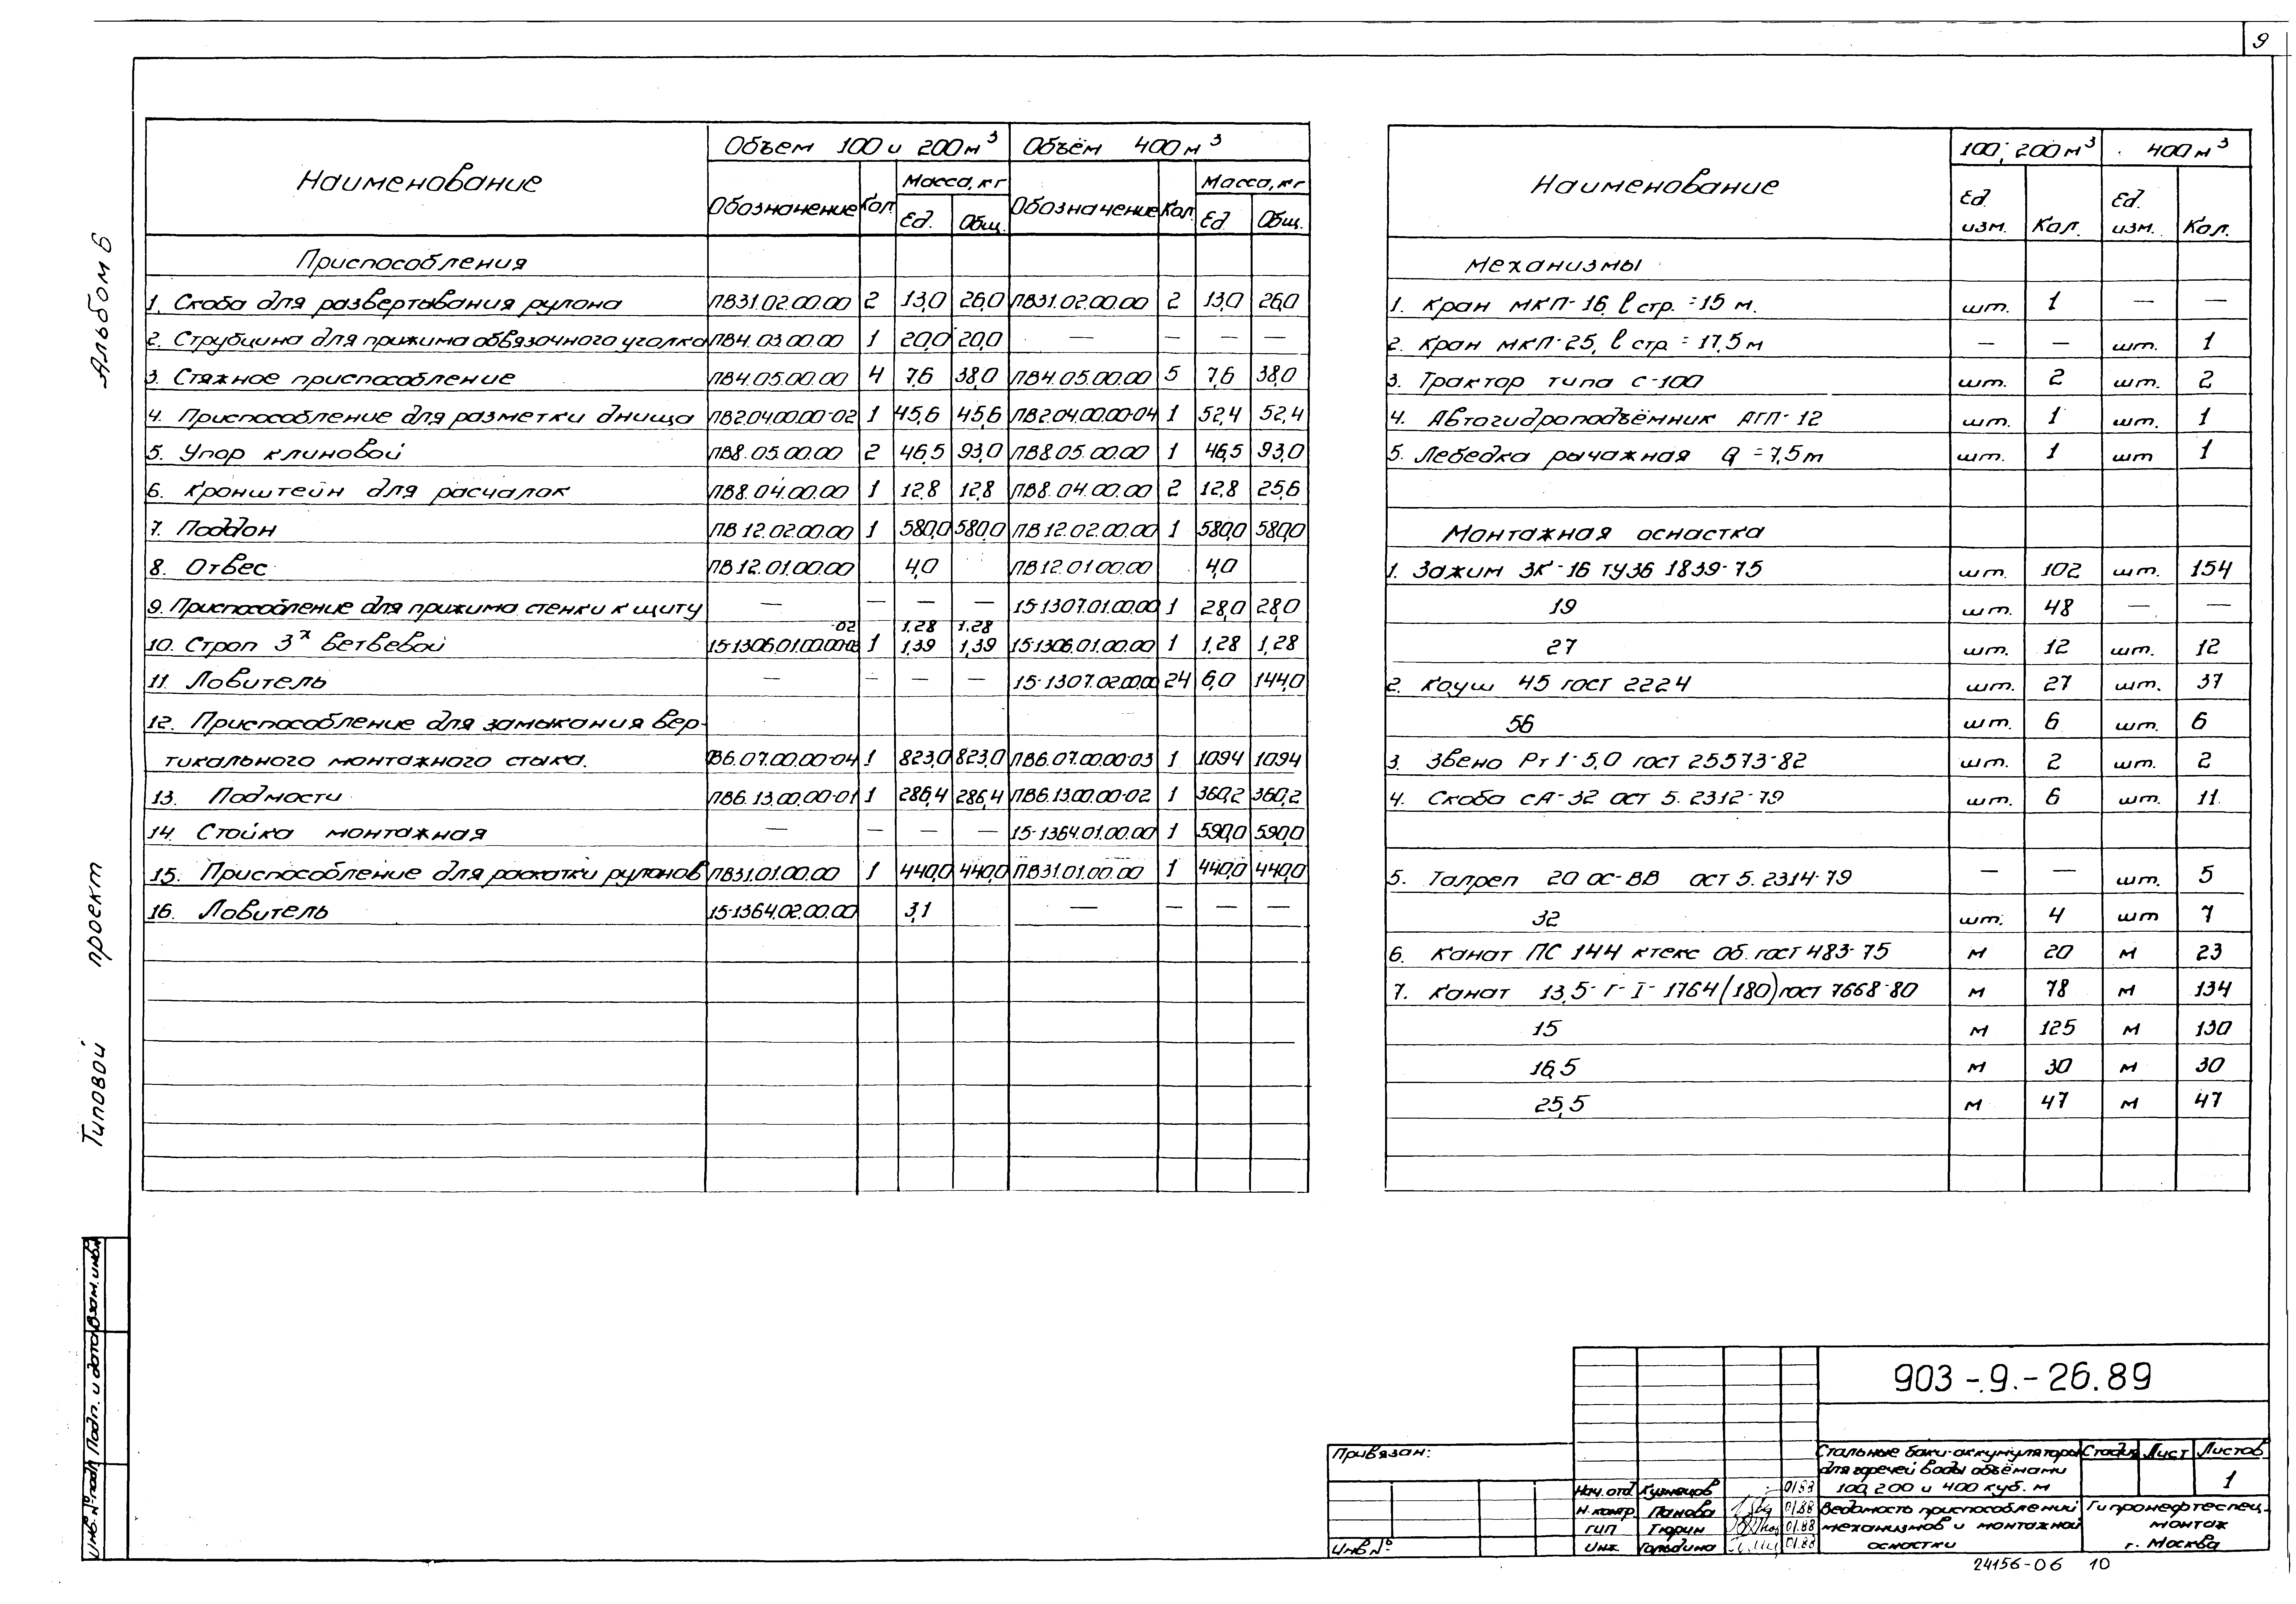 9
Альбом 6
Типовой проект
Наименование | Объем 100 и 200 м³ | Объём 400 м³
Обозначение | Кол. | Масса, кг | Обозначение | Кол. | Масса, кг
Ед. | Общ. | Ед. | Общ.
Приспособления
1. Скоба для развертывания рулона | ПВ31.02.00.00 | 2 | 13,0 | 26,0 | ПВ31.02.00.00 | 2 | 13,0 | 26,0
2. Струбцина для прижима обвязочного уголка | ПВ4.03.00.00 | 1 | 20,0 | 20,0 | — | — | — | —
3. Стяжное приспособление | ПВ4.05.00.00 | 4 | 7,6 | 38,0 | ПВ4.05.00.00 | 5 | 7,6 | 38,0
4. Приспособление для разметки днища | ПВ2.04.00.00-02 | 1 | 45,6 | 45,6 | ПВ2.04.00.00-04 | 1 | 52,4 | 52,4
5. Упор клиновой | ПВ8.05.00.00 | 2 | 46,5 | 93,0 | ПВ8.05.00.00 | 1 | 46,5 | 93,0
6. Кронштейн для расчалок | ПВ8.04.00.00 | 1 | 12,8 | 12,8 | ПВ8.04.00.00 | 2 | 12,8 | 25,6
7. Поддон | ПВ12.02.00.00 | 1 | 580,0 | 580,0 | ПВ12.02.00.00 | 1 | 580,0 | 580,0
8. Отвес | ПВ12.01.00.00 | 4,0 | ПВ12.01.00.00 | 4,0
9. Приспособление для прижима стенки к щиту | — | — | — | — | 15-1307.01.00.00 | 1 | 28,0 | 28,0
-02 | 1,28 | 1,28
10. Строп 3х ветвевой | 15-1306.01.00.00-03 | 1 | 1,39 | 1,39 | 15-1306.01.00.00 | 1 | 1,28 | 1,28
11. Ловитель | — | — | — | — | 15-1307.02.00.00 | 24 | 6,0 | 144,0
12. Приспособление для замыкания вер-
тикального монтажного стыка. | ПВ6.07.00.00-04 | 1 | 823,0 | 823,0 | ПВ6.07.00.00-03 | 1 | 1094 | 1094
13. Подмости | ПВ6.13.00.00-01 | 1 | 286,4 | 286,4 | ПВ6.13.00.00-02 | 1 | 360,2 | 360,2
14. Стойка монтажная | — | — | — | — | 15-1364.01.00.00 | 1 | 590,0 | 590,0
15. Приспособление для раскатки рулонов | ПВ31.01.00.00 | 1 | 440,0 | 440,0 | ПВ31.01.00.00 | 1 | 440,0 | 440,0
16. Ловитель | 15-1364.02.00.00 | 3,1 | — | — | — | —
Наименование | 100; 200 м³ | 400 м³
Ед. изм. | Кол. | Ед. изм. | Кол.
Механизмы
1. Кран МКП-16, l стр. = 15 м. | шт. | 1 | — | —
2. Кран МКП-25, l стр = 17,5 м | — | — | шт. | 1
3. Трактор типа С-100 | шт. | 2 | шт. | 2
4. Автогидроподъёмник АГП-12 | шт. | 1 | шт. | 1
5. Лебедка рычажная Q = 7,5 т | шт. | 1 | шт | 1
Монтажная оснастка
1. Зажим ЗК-16 ТУ36 1839-75 | шт. | 102 | шт. | 154
19 | шт. | 48 | — | —
27 | шт. | 12 | шт. | 12
2. Коуш 45 гост 2224 | шт. | 27 | шт. | 37
56 | шт. | 6 | шт. | 6
3. Звено Рт 1-5,0 гост 25573-82 | шт. | 2 | шт. | 2
4. Скоба СА-32 ост 5.2312-79 | шт. | 6 | шт. | 11
5. Талреп 20 ОС-ВВ ост 5.2314-79 | — | — | шт. | 5
32 | шт. | 4 | шт | 7
6. Канат ПС 144 ктекс Об. гост 483-75 | м | 20 | м | 23
7. Канат 13,5-Г-I-1764(180) гост 7668-80 | м | 78 | м | 134
15 | м | 125 | м | 130
16,5 | м | 30 | м | 30
25,5 | м | 47 | м | 47
Взам. инв. №
Подп. и дата
Инв. № подл.
Привязан:
Инв №
903-.9.-26.89
Стальные баки-аккумуляторы
для горячей воды объёмами
100, 200 и 400 куб. м
Стадия | Лист | Листов
1
Нач. отд | Кузнецов | 01.88
Н. контр. | Панова | 01.88
ГИП | Тюрин | 01.88
Инж. | Гольдина | 01.88
Ведомость приспособлений
механизмов и монтажной
оснастки
Гипронефтеспец-
монтаж
г. Москва
24156-06 10